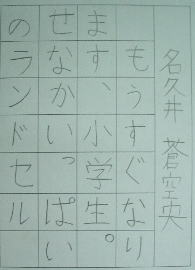 名久井 蒼空央
もうすぐなり
ます、小学生。
せなかいっぱい
のランドセル